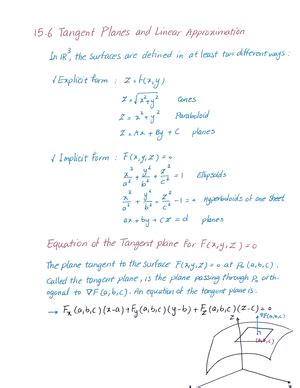 15.6 Tangent Planes and Linear Approximation
In ℝ³, the surfaces are defined in at least two different ways:
✓ Explicit form : Z = F(x,y)
Z = √x²+y² cones
Z = x²+y² Paraboloid
Z = Ax + By + C planes
✓ Implicit form : F(x,y,z) = 0
x²/a² + y²/b² + z²/c² = 1 Ellipsoids
x²/a² + y²/b² - z²/c² - 1 = 0 Hyperboloids of one sheet
ax + by + cz = d planes
Equation of the Tangent plane for F(x,y,z) = 0
The plane tangent to the surface F(x,y,z) = 0 at P₀(a,b,c).
Called the tangent plane, is the plane passing through P₀ orth-
ogonal to ∇F(a,b,c). An equation of the tangent plane is:
→ Fx(a,b,c)(x-a) + Fy(a,b,c)(y-b) + Fz(a,b,c)(z-c) = 0
Z
∇F(a,b,c)
(a,b,c)